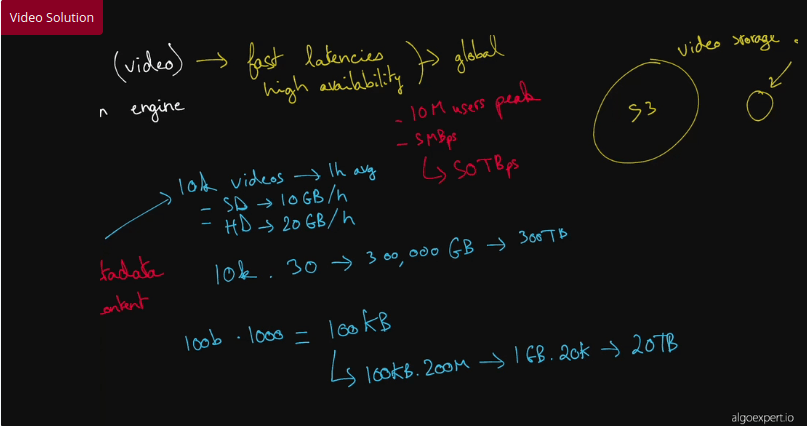 Video Solution
(video) → fast latencies
high availability) → global
video storage
n engine
S3
- 10M users peak
- 5MBps
↳ 50TBps
10k videos → 1h avg
- SD → 10GB/h
- HD → 20GB/h
tadata
ontent
10k . 30 → 300,000 GB → 300TB
100b . 1000 = 100KB
↳ 100KB.200M → 1GB.20K → 20TB
algoexpert.io